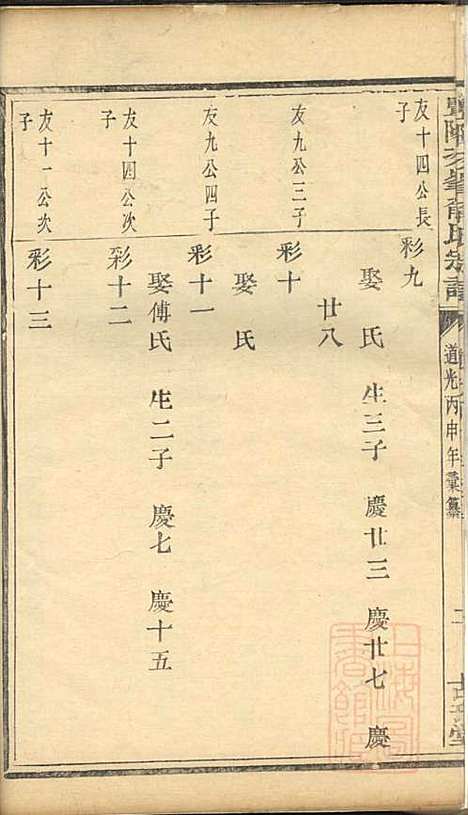 道光丙申年彙纂
友十四公長子
彩九
娶 氏 生三子 慶廿三 慶廿七 慶
廿八
友九公三子
彩十
娶 氏
友九公四子
彩十一
娶傅氏 生二子 慶七 慶十五
友十四公次子
彩十二
友十一公次子
彩十三